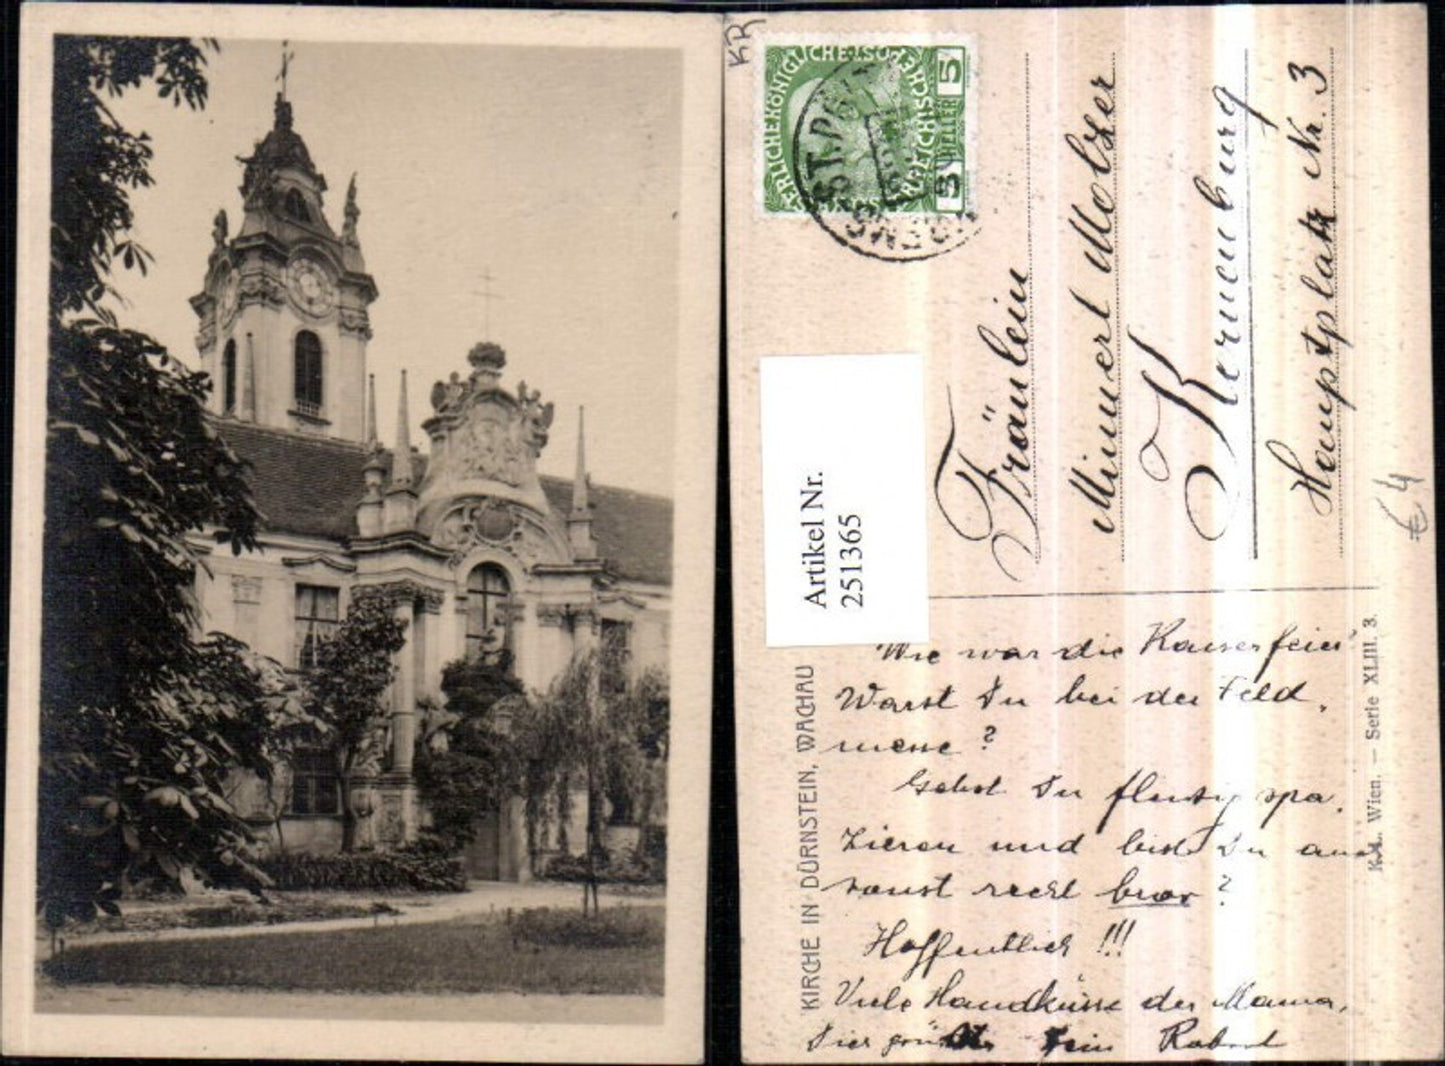 KR
KAISERLICHE KÖNIGLICHE ÖSTERREICHISCHE
5 HELLER 5
ST. PÖ
Fräulein
Minnerl Molzer
Korneuburg
Hauptplatz Nr. 3
€ 4
Artikel Nr.
251365
KIRCHE IN DÜRNSTEIN, WACHAU
K.L. Wien. — Serie XLIII. 3.
Wie war die Kaiserfeier?
Warst Du bei der Feld
messe?
Gehst Du fleißig spa
zieren und bist Du auch
sonst recht brav?
Hoffentlich!!!
Viele Handküsse der Mama,
Dein Robert